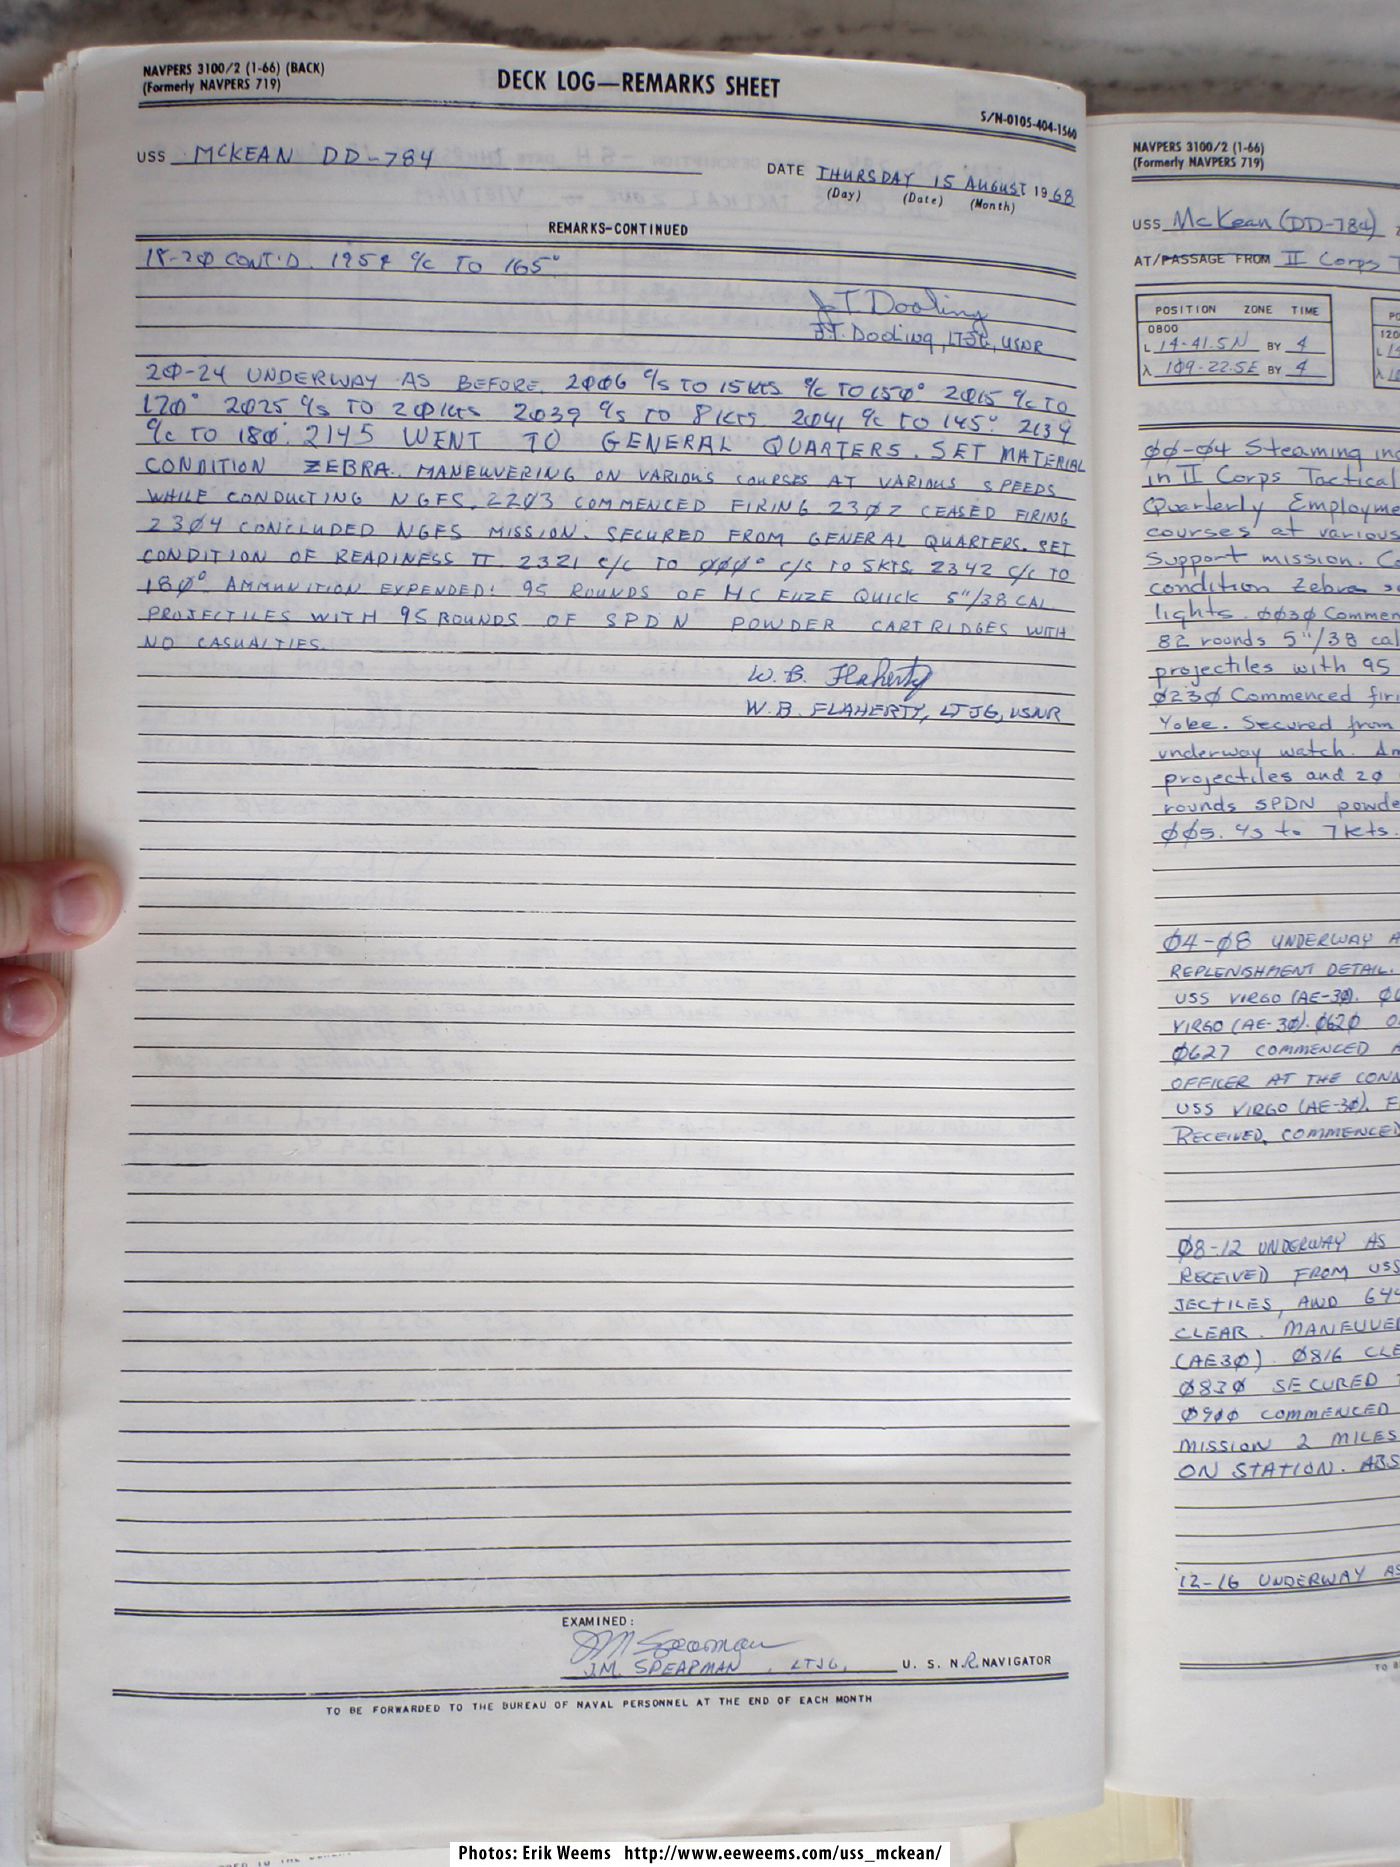 NAVPERS 3100/2 (1-66) (BACK)
(Formerly NAVPERS 719)
DECK LOG—REMARKS SHEET
S/N-0105-404-1560
USS MCKEAN DD-784
DATE THURSDAY 15 AUGUST 1968
(Day) (Date) (Month)
REMARKS-CONTINUED
18-2Ø CONT'D. 1959 c/c TO 165°
J.T. Dooling
J.T. Dooling, LTJG, USNR
2Ø-24 UNDERWAY AS BEFORE. 2ØØ6 c/s TO 15KTS c/c TO 15Ø° 2Ø15 c/c TO
17Ø° 2Ø25 c/s TO 2ØKTS 2Ø39 c/s TO 8KTS 2Ø41 c/c TO 145° 2139
c/c TO 18Ø°. 2145 WENT TO GENERAL QUARTERS. SET MATERIAL
CONDITION ZEBRA. MANEUVERING ON VARIOUS COURSES AT VARIOUS SPEEDS
WHILE CONDUCTING NGFS. 22Ø3 COMMENCED FIRING 23Ø2 CEASED FIRING
23Ø4 CONCLUDED NGFS MISSION. SECURED FROM GENERAL QUARTERS. SET
CONDITION OF READINESS II. 2321 c/c TO ØØØ° c/s TO 5KTS. 2342 c/c TO
18Ø° AMMUNITION EXPENDED: 95 ROUNDS OF HC FUZE QUICK 5"/38 CAL
PROJECTILES WITH 95 ROUNDS OF SPDN POWDER CARTRIDGES WITH
NO CASUALTIES.
W. B. Flaherty
W.B. FLAHERTY, LTJG, USNR
EXAMINED:
JM Spearman
J.M. SPEARMAN, LTJG, U. S. N.R. NAVIGATOR
TO BE FORWARDED TO THE BUREAU OF NAVAL PERSONNEL AT THE END OF EACH MONTH
NAVPERS 3100/2 (1-66)
(Formerly NAVPERS 719)
USS McKean (DD-784)
AT/PASSAGE FROM II Corps T
POSITION ZONE TIME
0800
L 14-41.5N BY 4
λ 1Ø9-22.5E BY 4
ØØ-Ø4 Steaming in
in II Corps Tactical
Quarterly Employme
courses at various
Support mission. C
condition Zebra s
lights. ØØ3Ø Commen
82 rounds 5"/38 cal
projectiles with 95
Ø23Ø Commenced firi
Yoke. Secured from
underway watch. Am
projectiles and 2Ø
rounds SPDN powde
ØØ5. c/s to 7kts.
Ø4-Ø8 UNDERWAY A
REPLENISHMENT DETAIL.
USS VIRGO (AE-3Ø). Ø6
VIRGO (AE-3Ø). Ø62Ø O
Ø627 COMMENCED A
OFFICER AT THE CONN
USS VIRGO (AE-3Ø). F
RECEIVED, COMMENCED
Ø8-12 UNDERWAY AS
RECEIVED FROM USS
JECTILES, AND 644
CLEAR. MANEUVER
(AE3Ø). Ø816 CLE
Ø83Ø SECURED T
Ø9ØØ COMMENCED
MISSION 2 MILES
ON STATION. ABS
12-16 UNDERWAY AS
Photos: Erik Weems http://www.eeweems.com/uss_mckean/